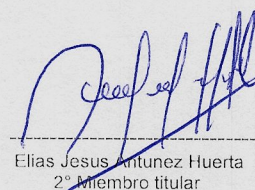 Elias Jesus Antunez Huerta
2° Miembro titular